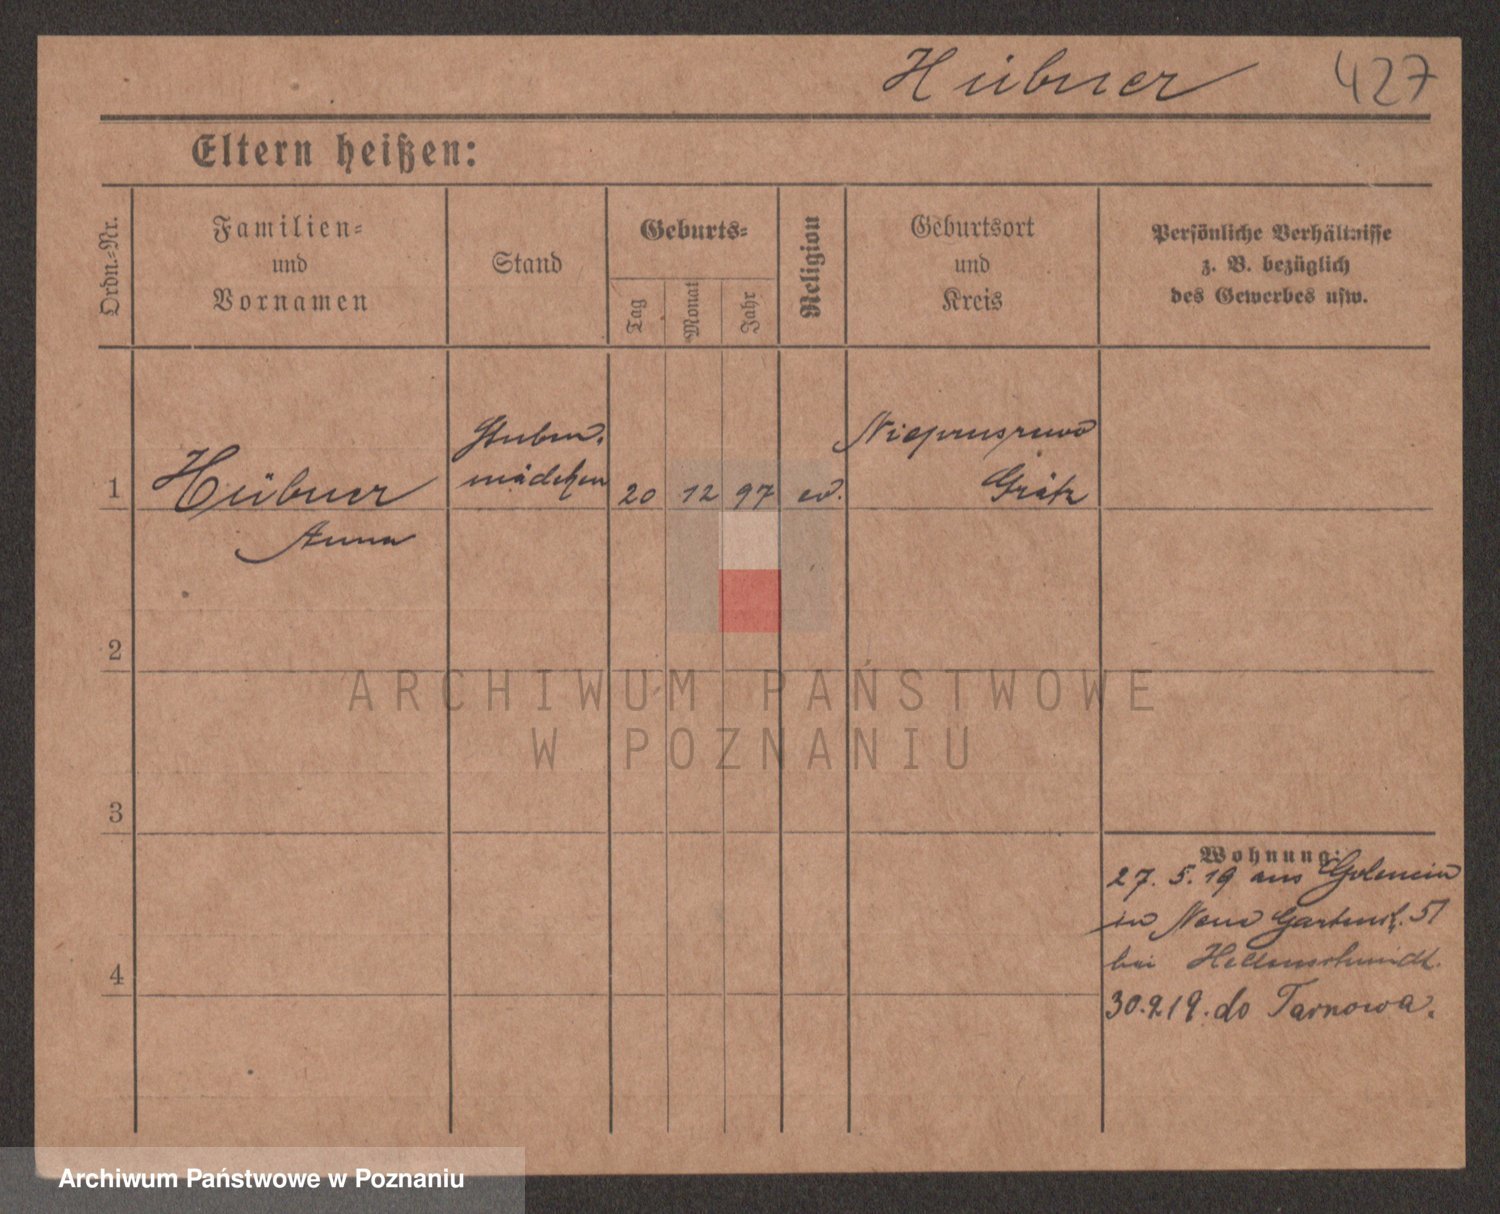 Hübner 427
Eltern heißen:
Ordn.-Nr.
Familien-
und
Vornamen
Stand
Geburts-
Tag
Monat
Jahr
Religion
Geburtsort
und
Kreis
Persönliche Verhältnisse
z. B. bezüglich
des Gewerbes usw.
1 Hübner
Anna
Stuben-
mädchen
20 12 97 ev.
Niepruszewo
Grätz
2
3
4
Wohnung:
27. 5. 19 aus Golencin
in Neue Gartenstr. 51
bei Hellenschmidt.
30.9.19. do Tarnowa.
ARCHIWUM PAŃSTWOWE
W POZNANIU
Archiwum Państwowe w Poznaniu